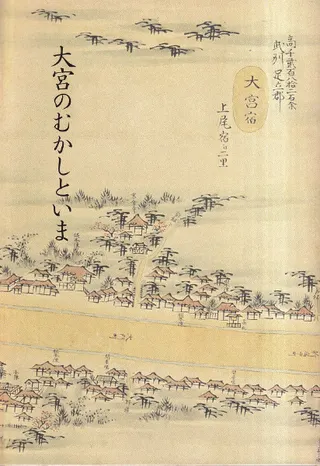 高千弐百八拾一石余
武州 足立郡
大宮宿
上尾宿江二里
大宮のむかしといま